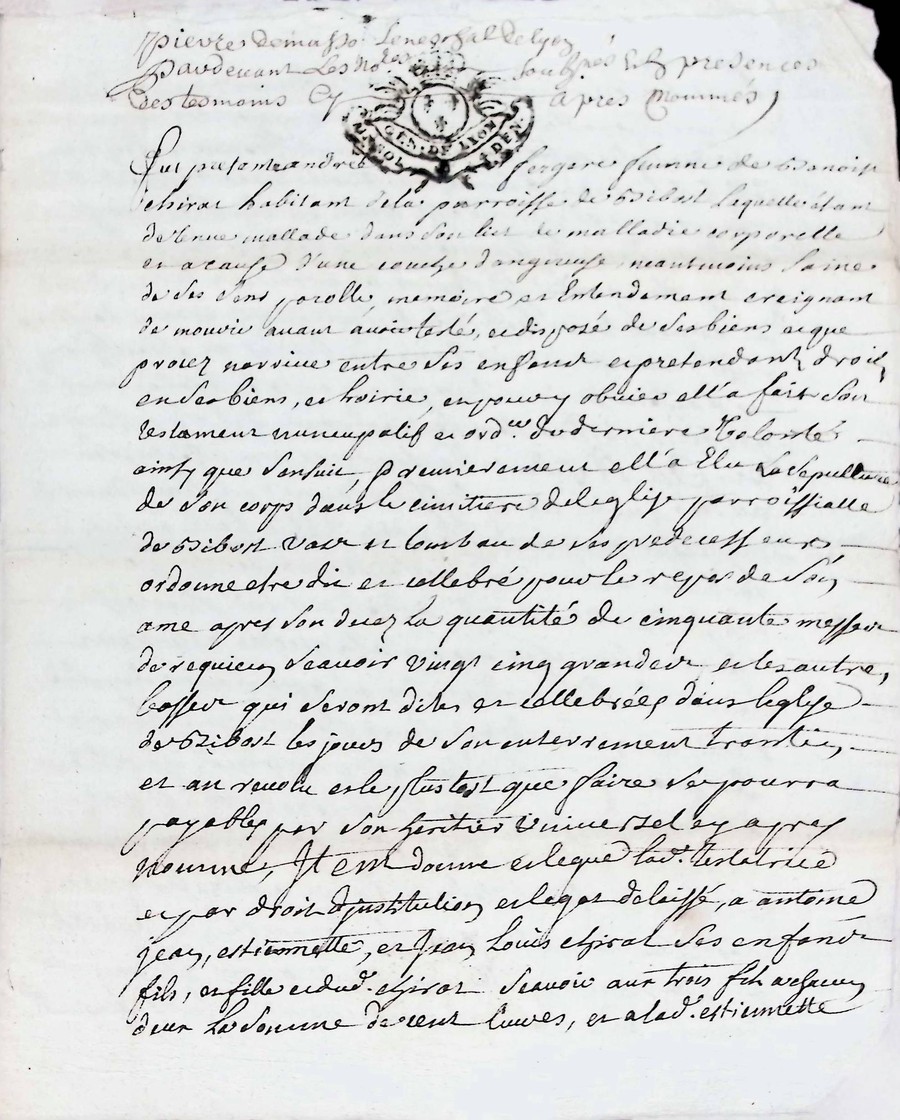 pierre demasso seneschal de lyon
pardevant Les No.res soubs.nés Et presences
des tesmoins Cy apres Nommés
GEN. DE LYON
DEN.
fut presente andrée fergere femme de Benoist
chirat habitant de la parroisse de Bibost laquelle étant
detenue mallade dans son lict de malladie corporelle
et a cause d'une couche dangereuse, neantmoins saine
de ses sens parolle, memoire, et Entendement creignant
de mourir avant avoir testé, et disposé de ses biens et que
procez narrive entre ses enfants et pretendants droit
en ses biens, et hoirie, en pour y obvier ell'a fait son
testament nuncupatif et ord.re de derniere Volonté
ainsy que sensuit, premierement ell'a Elu La Sepulture
de son corps dans le cimitiere de leglise parroissialle
de Bibost vase et tombau de ses predecesseurs
ordonne etre dit et cellebré pour le repos de son
ame apres son decez La quantité de cinquante messes
de requiem scavoir vingt cinq grandes et les autre,
basses qui seront dites et cellebrées dans leglise
de Bibost les jours de son enterrement trantin,
et an revolu et le plustost que faire se pourra
payables par son heritier universel cy apres
nommé, Item donne et legue lad. testatrice
et par droit d'justitution et legat delaissé, a antoine
jean, estiennette, et Jean Louis chirat ses enfants
fils, et fille et dud. chirat scavoir aux trois fils a chacun
deux La Somme de cent livres, et a lad. estiennette